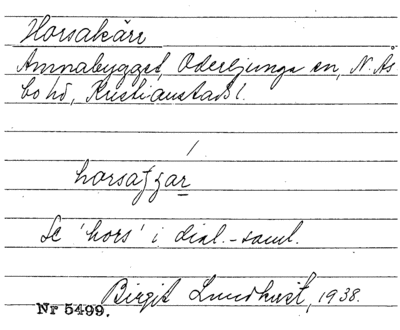 Horsakärr
Ämnabygget, Oderljunga sn, N. Ås
bo hd, Kristianstads l.
Se 'hors' i dial.-saml.
Birgit Lundkvist, 1938.
Nr 5499.